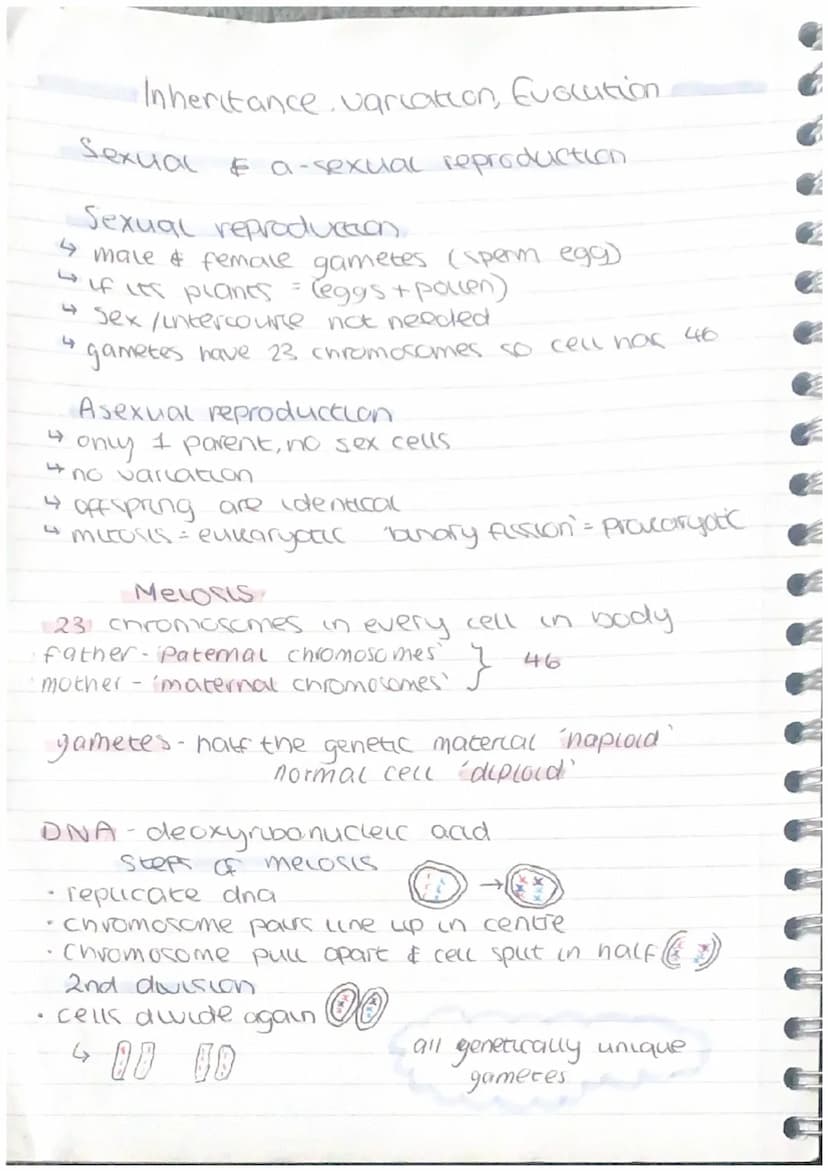 Inheritance, variation, Evolution
Sexual & a-sexual reproduction
Sexual reproduction
↳ male & female gametes (sperm egg)
↳ if its plants = (eggs + pollen)
↳ sex/intercourse not needed
↳ gametes have 23 chromosomes so cell has 46
Asexual reproduction
↳ only 1 parent, no sex cells
↳ no variation
↳ offspring are identical
↳ mitosis = eukaryotic 'binary fission' = prokaryotic
Meiosis
23 chromosomes in every cell in body
father - 'paternal chromosomes' } 46
mother - 'maternal chromosomes'
gametes - half the genetic material 'haploid'
normal cell 'diploid'
DNA - deoxyribonucleic acid
Steps of meiosis
• replicate dna
• chromosome pairs line up in centre
• chromosome pull apart & cell split in half
2nd division
• cells divide again
↳
all genetically unique
gametes